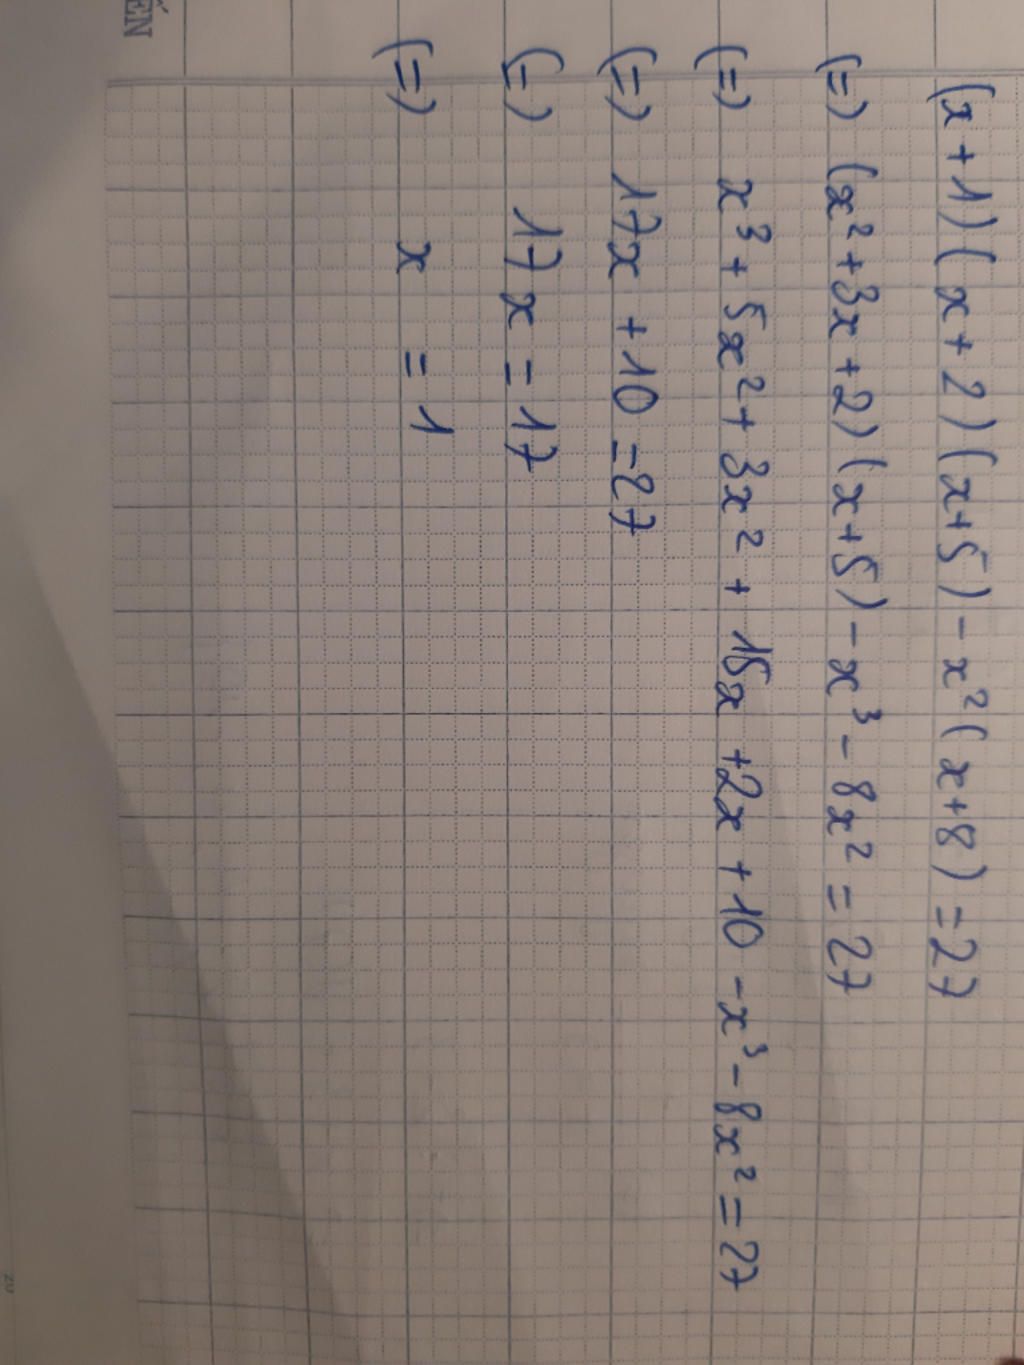 (x+1)(x+2)(x+5)-x²(x+8)=27
(=) (x²+3x+2)(x+5)-x³-8x²=27
(=) x³+5x²+3x²+15x+2x+10-x³-8x²=27
(=) 17x+10=27
(=) 17x=17
(=) x=1
ẾN
20